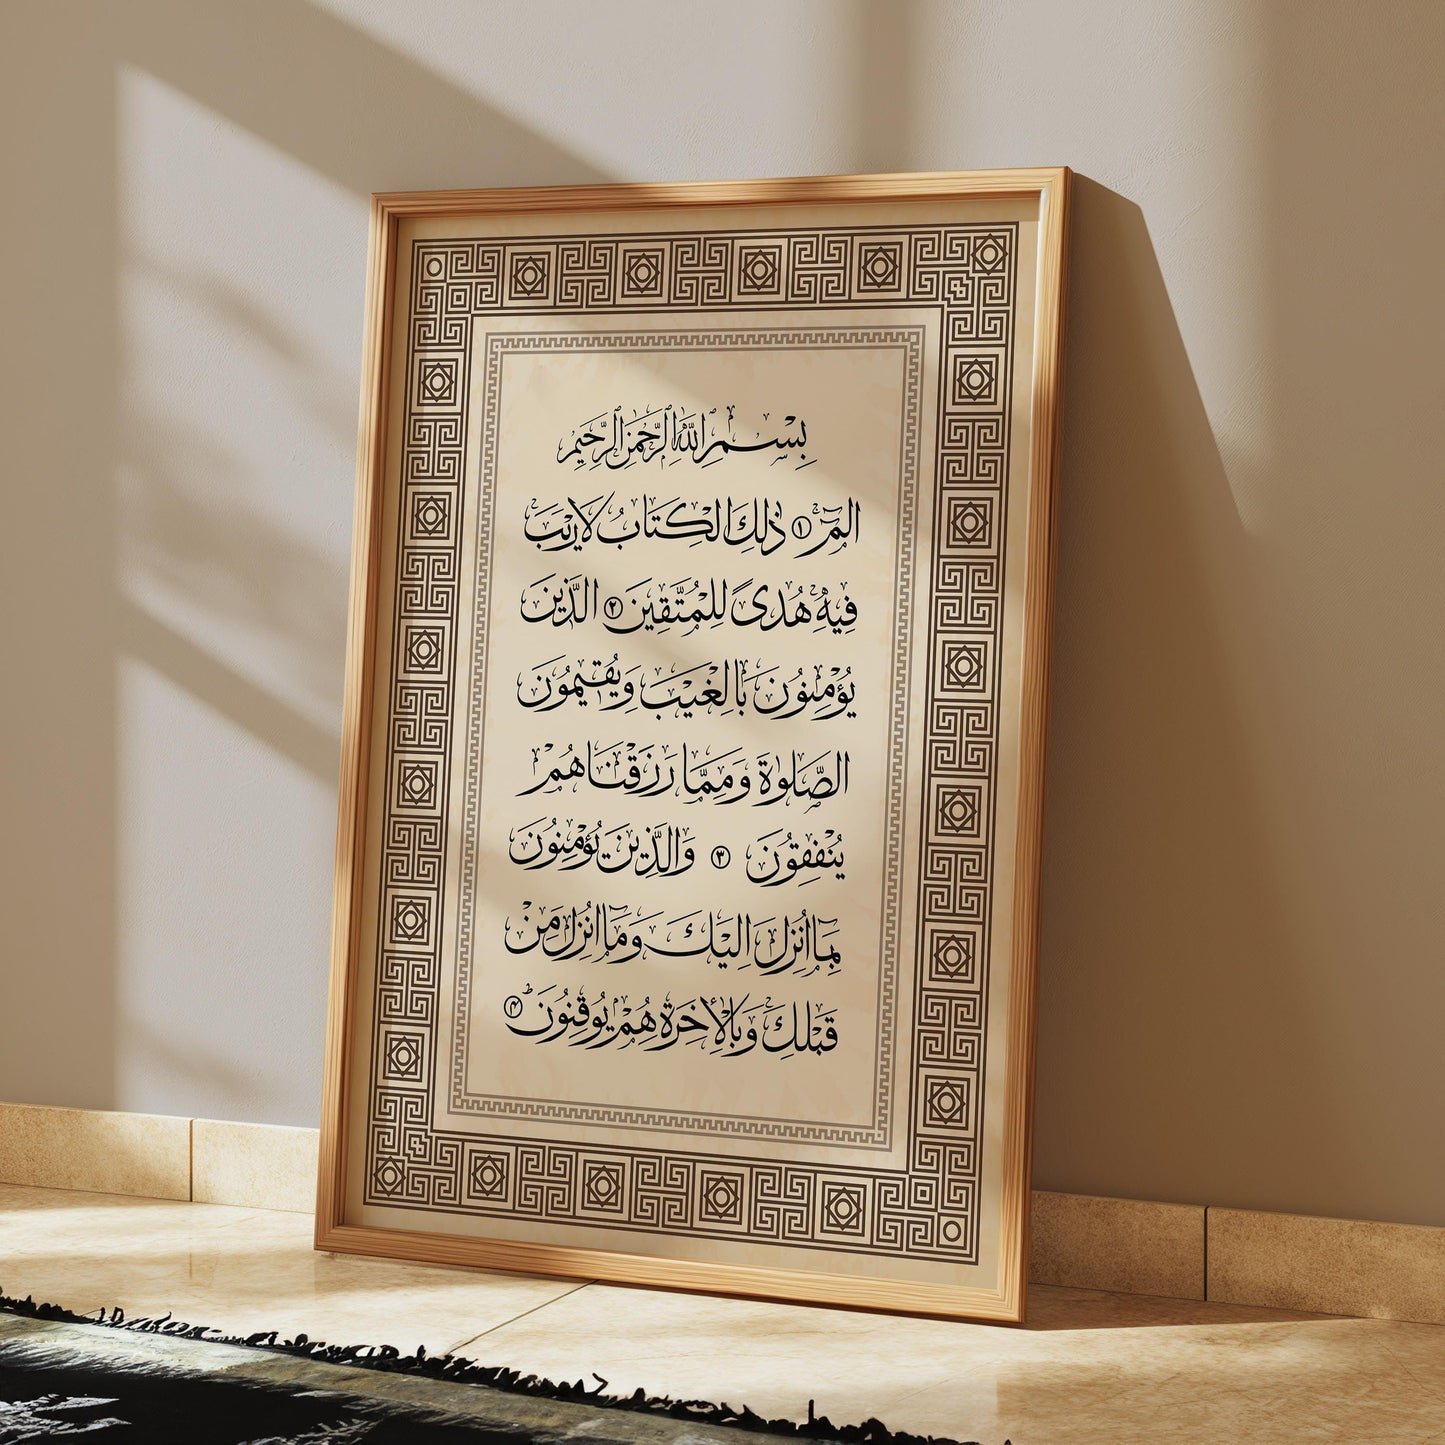 بِسْمِ اللهِ الرَّحْمٰنِ الرَّحِيْمِ
الٓمّٓ ۝١ ذٰلِكَ الْكِتَابُ لَا رَيْبَ
فِيْهِ هُدًى لِلْمُتَّقِيْنَ ۝٢ الَّذِيْنَ
يُؤْمِنُوْنَ بِالْغَيْبِ وَيُقِيْمُوْنَ
الصَّلٰوةَ وَمِمَّا رَزَقْنَاهُمْ
يُنْفِقُوْنَ ۝٣ وَالَّذِيْنَ يُؤْمِنُوْنَ
بِمَٓا اُنْزِلَ اِلَيْكَ وَمَٓا اُنْزِلَ مِنْ
قَبْلِكَ وَبِالْاٰخِرَةِ هُمْ يُوْقِنُوْنَ ؕ ۝۴